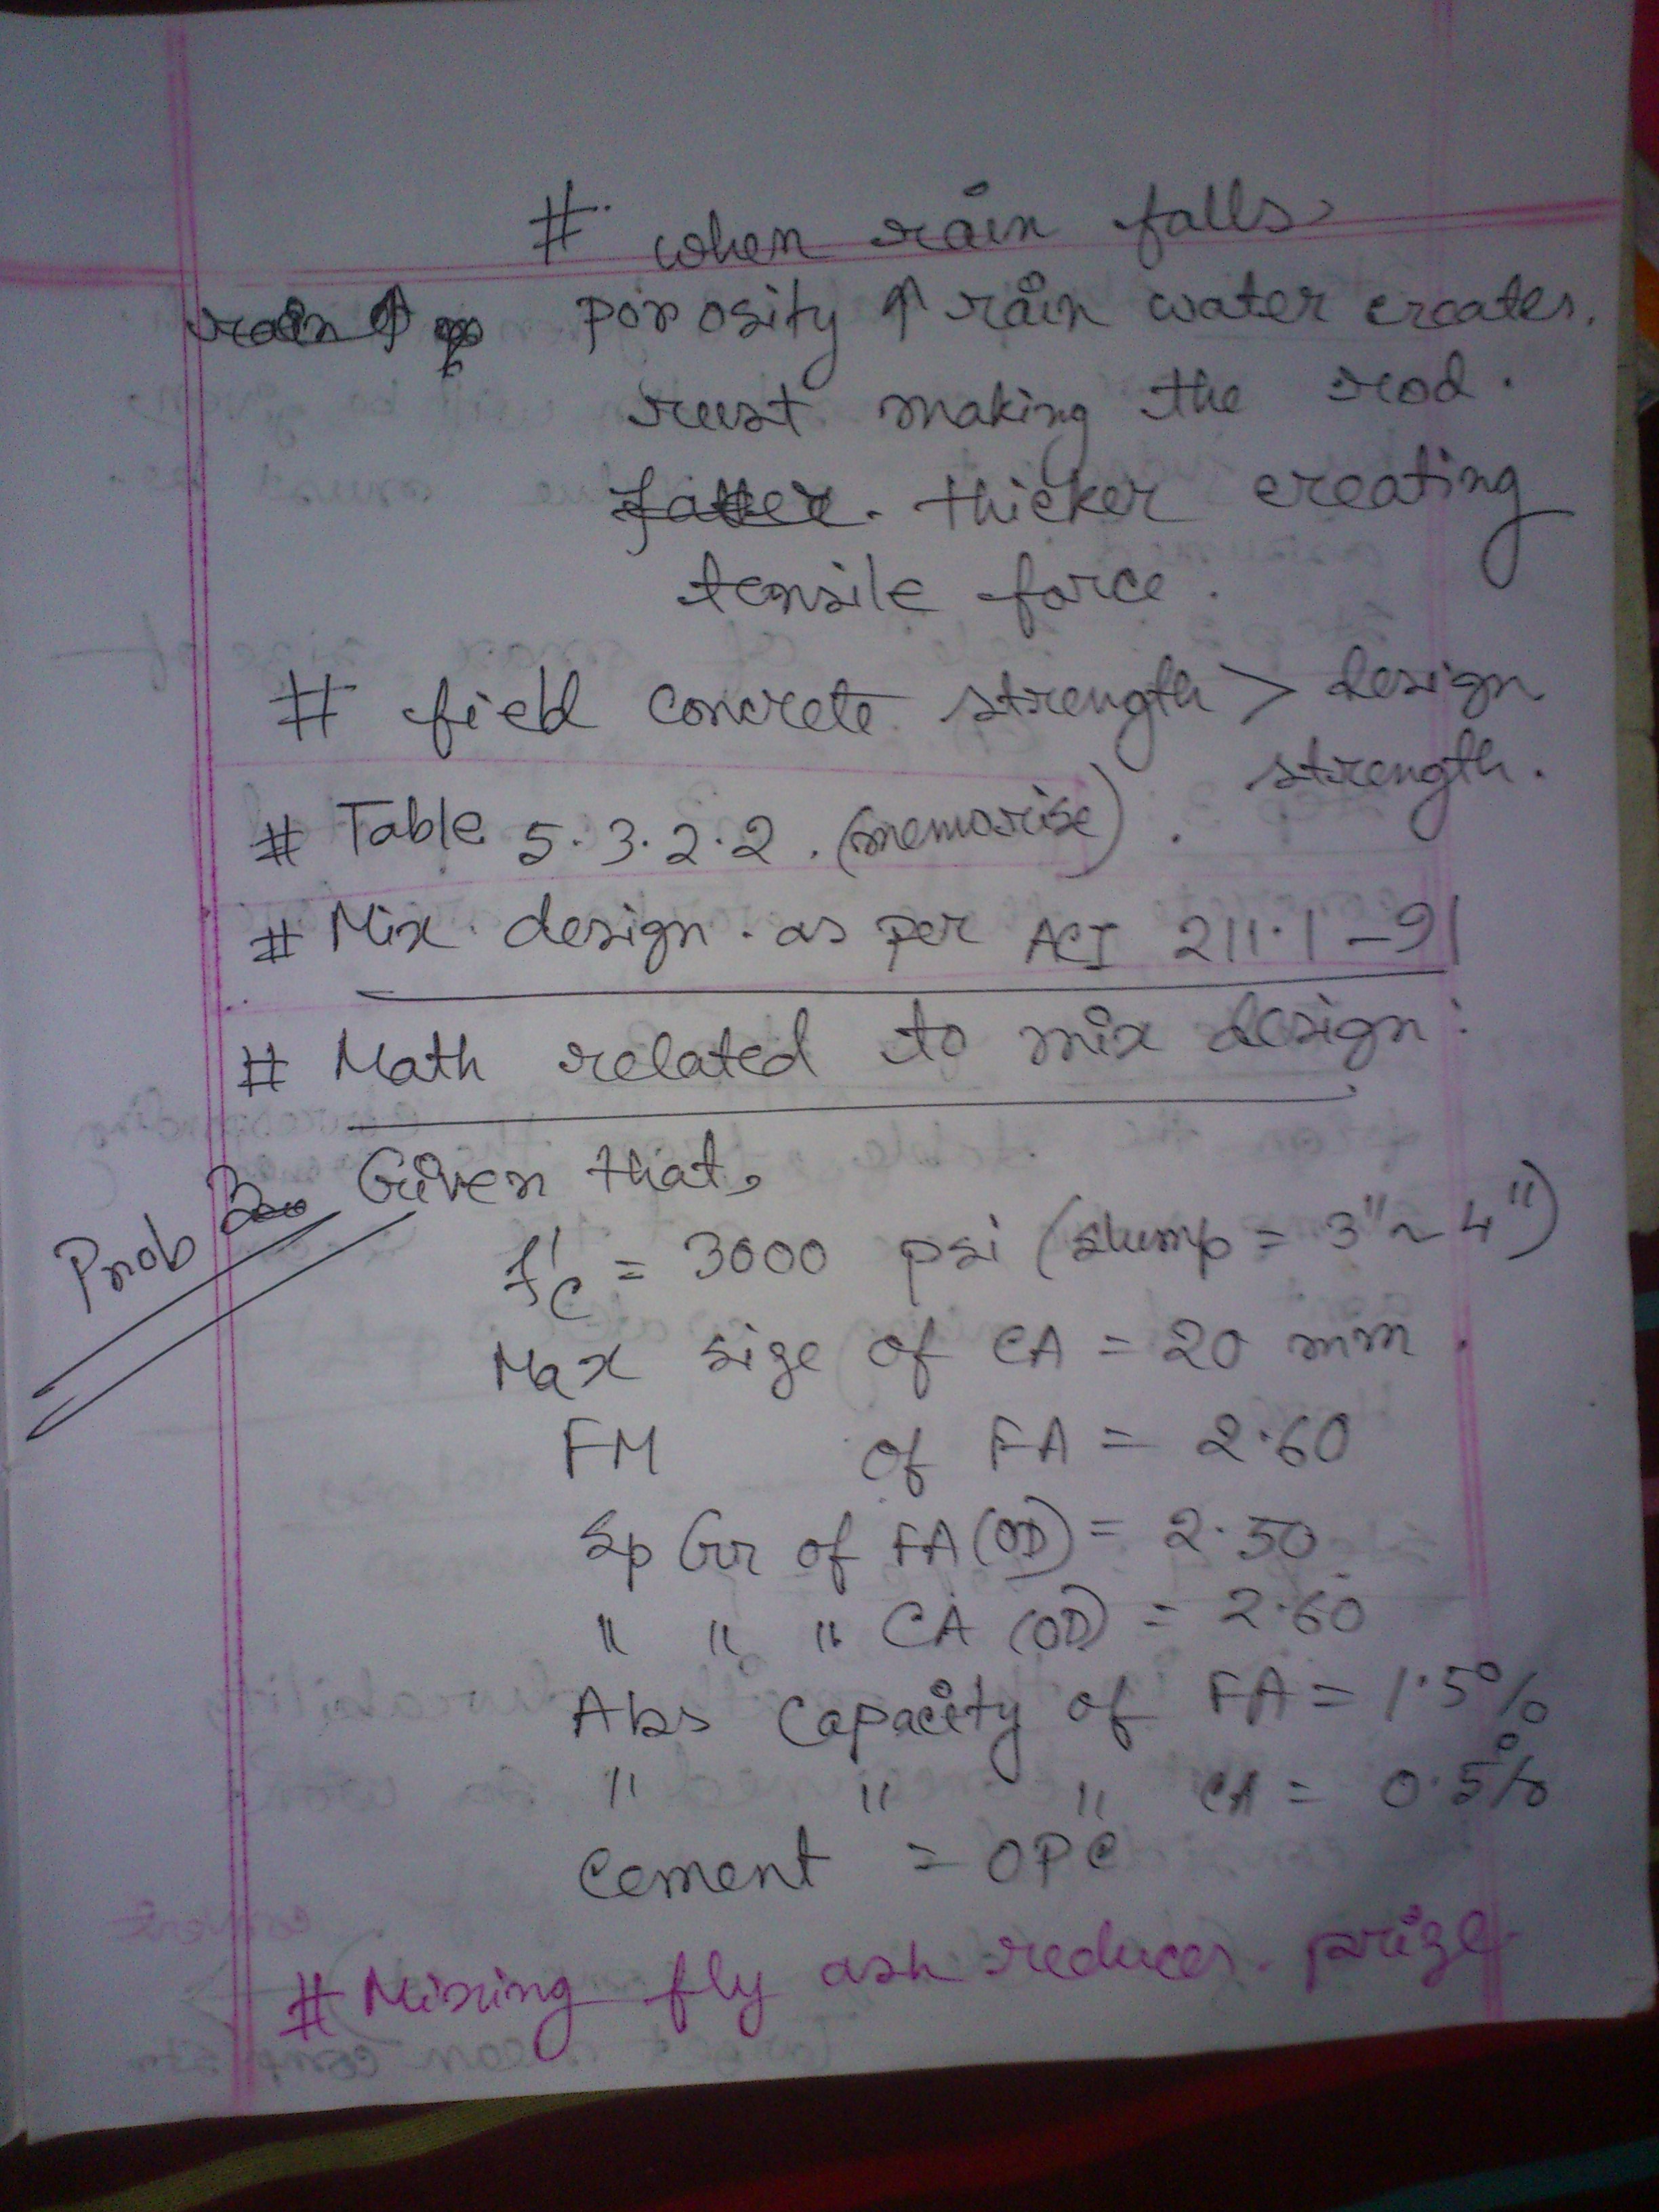 # when rain falls
rain ↑ porosity ↑ rain water creates.
rust making the rod.
fatter. thicker creating
tensile force.
# field concrete strength > design
strength.
# Table 5.3.2.2. (memorise).
# Mix design as per ACI 211.1-91
# Math related to mix design:
Prob Given that,
f'c = 3000 psi (slump = 3"~4")
Max size of CA = 20 mm.
FM of FA = 2.60
Sp Gr of FA (OD) = 2.50
" " " CA (OD) = 2.60
Abs Capacity of FA = 1.5%
" " " CA = 0.5%
Cement = OPC
# Mixing fly ash reduces prize